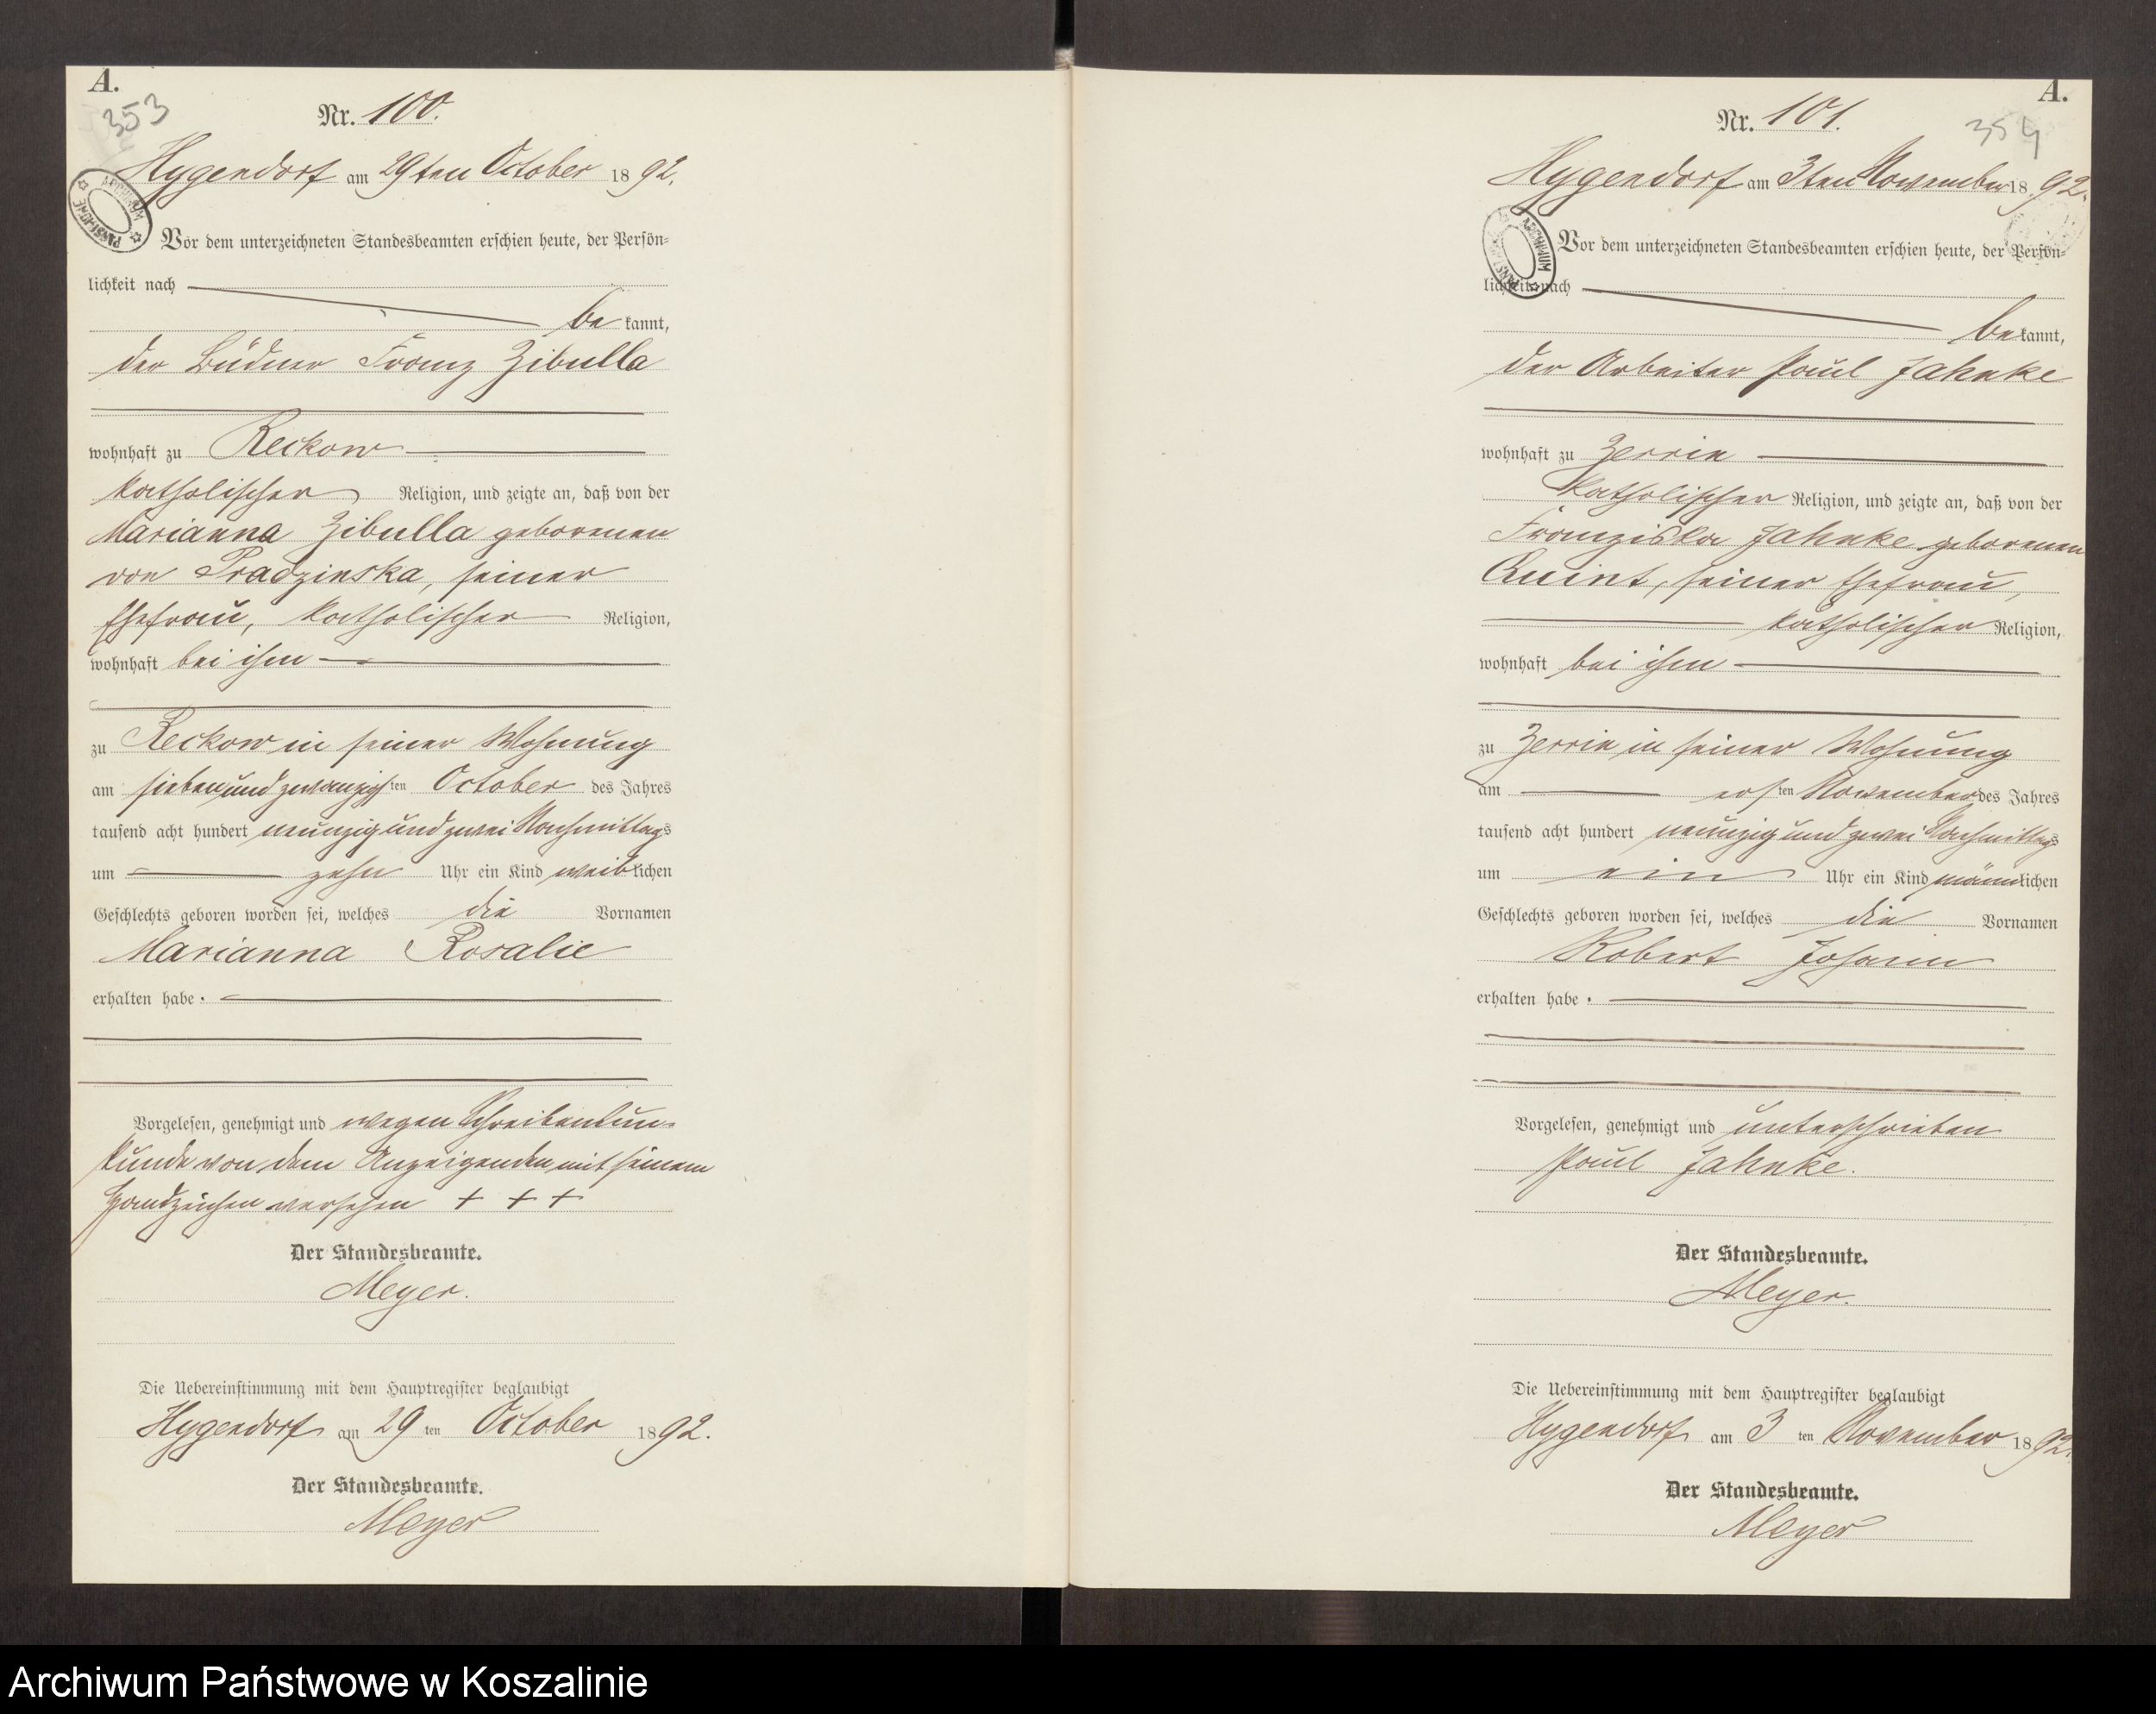 A.
353
Nr. 100.
Hygendorf am 29ten October 1892.
Vor dem unterzeichneten Standesbeamten erschien heute, der Persön-
lichkeit nach
be kannt,
der Büdner Franz Zibulla
wohnhaft zu Reckow
katholischer Religion, und zeigte an, daß von der
Marianna Zibulla geborenen
von Pradzinska, seiner
Ehefrau, katholischer Religion,
wohnhaft bei ihm
zu Reckow in seiner Wohnung
am siebenundzwanzigsten October des Jahres
tausend acht hundert neunzig und zwei Nachmittags
um zehn Uhr ein Kind weiblichen
Geschlechts geboren worden sei, welches die Vornamen
Marianna Rosalie
erhalten habe.
Vorgelesen, genehmigt und wegen Schreibensun-
kunde von dem Anzeigenden mit seinem
Handzeichen versehen + + +
Der Standesbeamte.
Meyer.
Die Uebereinstimmung mit dem Hauptregister beglaubigt
Hygendorf am 29 ten October 1892.
Der Standesbeamte.
Meyer
A.
354
Nr. 101.
Hygendorf am 3ten November 1892.
Vor dem unterzeichneten Standesbeamten erschien heute, der Persön-
lichkeit nach
be kannt,
der Arbeiter Paul Jahnke
wohnhaft zu Zerrin
katholischer Religion, und zeigte an, daß von der
Franziska Jahnke geborenen
Quint, seiner Ehefrau,
katholischer Religion,
wohnhaft bei ihm
zu Zerrin in seiner Wohnung
am ersten November des Jahres
tausend acht hundert neunzig und zwei Nachmittags
um ein Uhr ein Kind männlichen
Geschlechts geboren worden sei, welches die Vornamen
Robert Johann
erhalten habe.
Vorgelesen, genehmigt und unterschrieben
Paul Jahnke.
Der Standesbeamte.
Meyer.
Die Uebereinstimmung mit dem Hauptregister beglaubigt
Hygendorf am 3 ten November 1892.
Der Standesbeamte.
Meyer
Archiwum Państwowe w Koszalinie